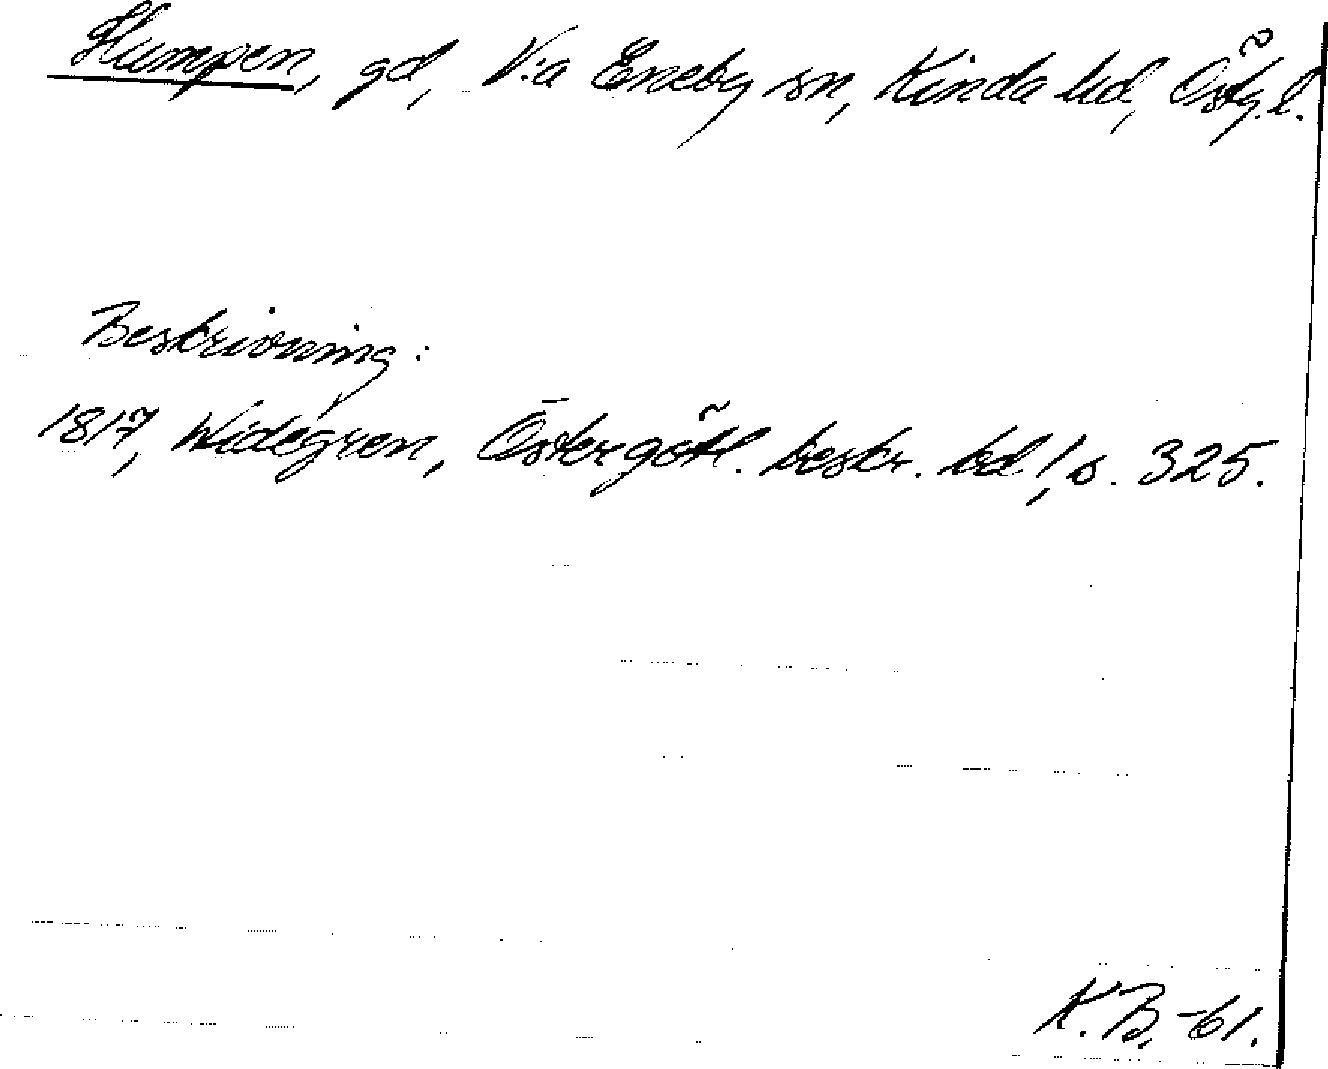 Humpen, gd, V:a Eneby sn, Kinda hd, Östg. l.
Beskrivning:
1817, Widegren, Östergötl. beskr. bd 1, s. 325.
K.B. -61.